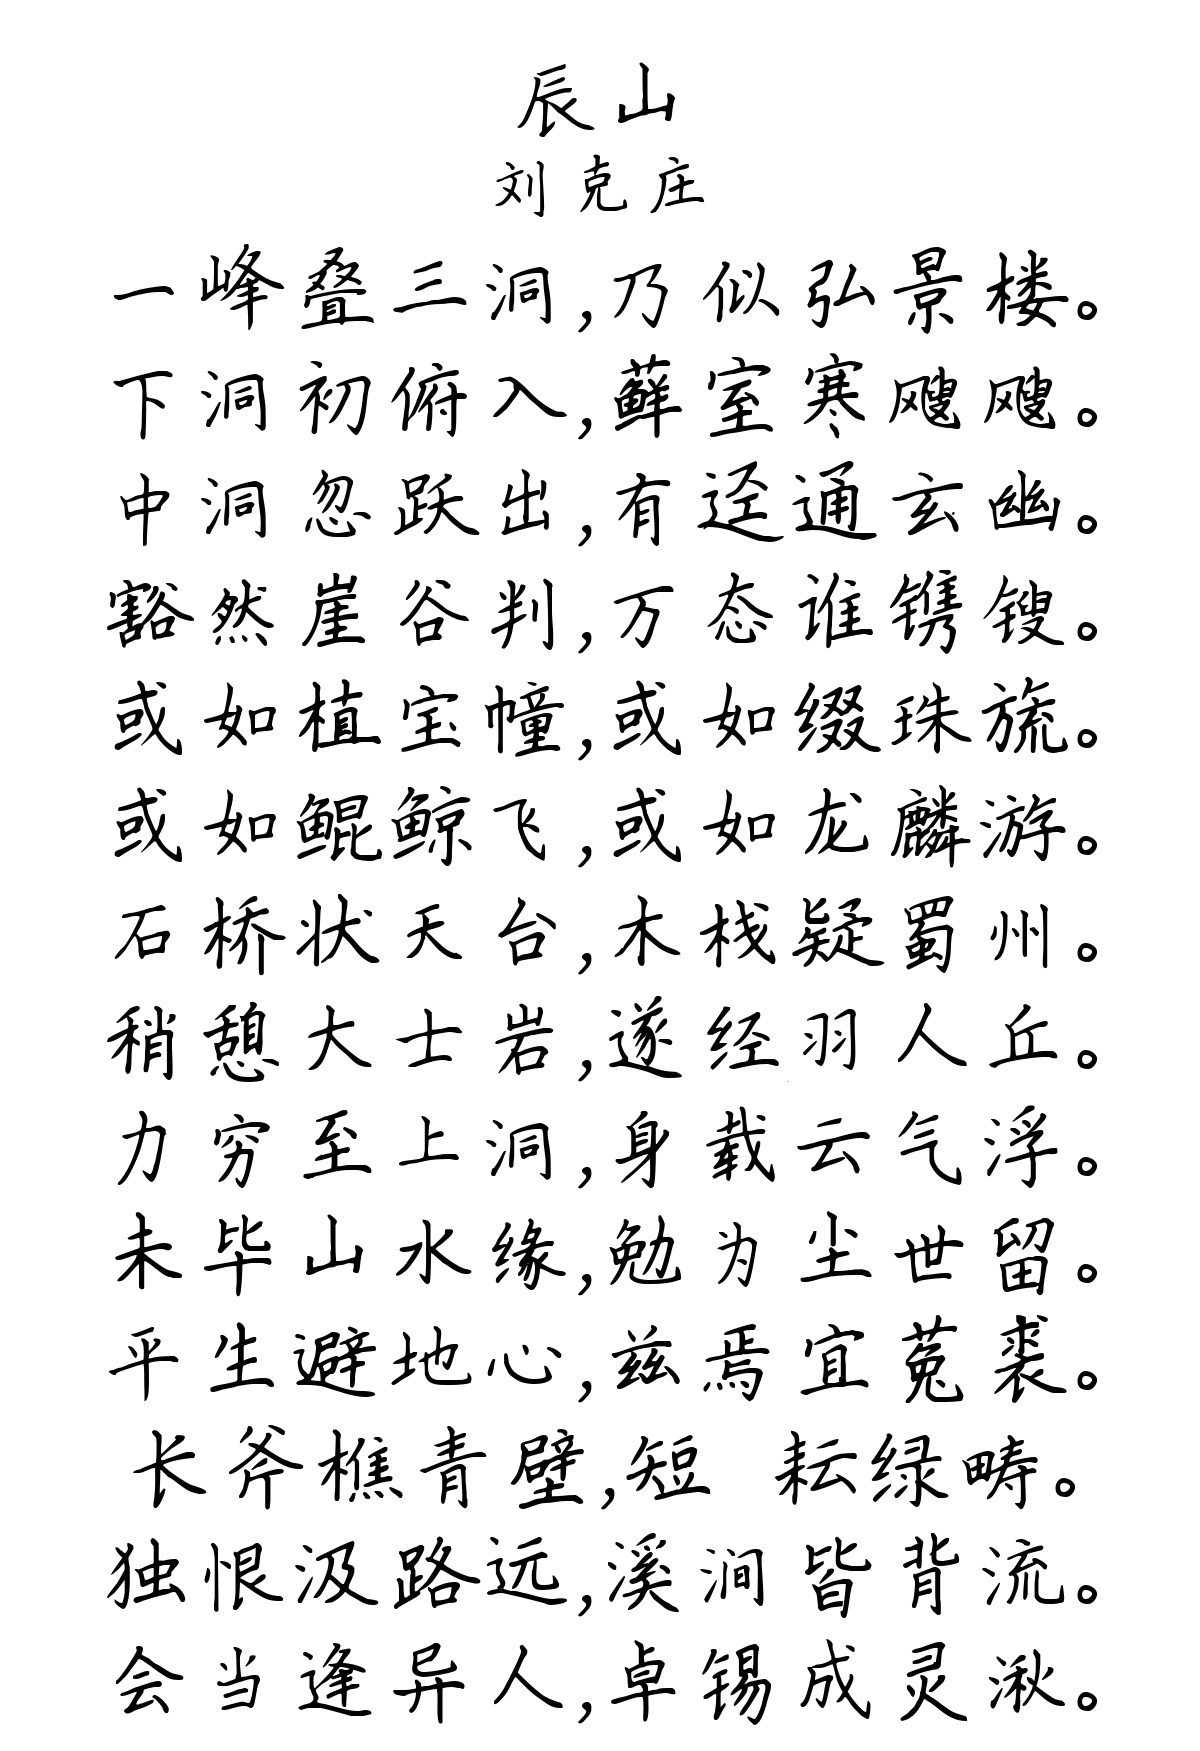 辰山
刘克庄
一峰叠三洞,乃似弘景楼。
下洞初俯入,藓室寒飕飕。
中洞忽跃出,有迳通玄幽。
豁然崖谷判,万态谁镌锼。
或如植宝幢,或如缀珠旒。
或如鲲鲸飞,或如龙麟游。
石桥状天台,木栈疑蜀州。
稍憩大士岩,遂经羽人丘。
力穷至上洞,身载云气浮。
未毕山水缘,勉为尘世留。
平生避地心,兹焉宜菟裘。
长斧樵青壁,短 耘绿畴。
独恨汲路远,溪涧皆背流。
会当逢异人,卓锡成灵湫。